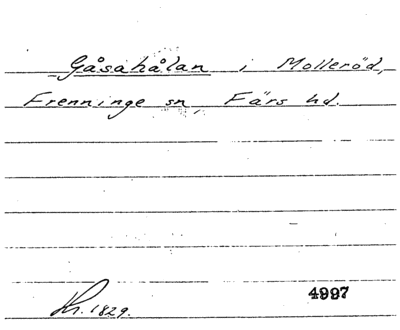 Gåsahålan i Molleröd,
Frenninge sn, Färs hd.
1829.
4997